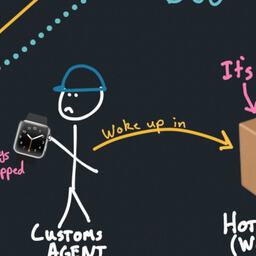 It's
Woke up in
ys
pped
CUSTOMS
AGENT
HOT
(W